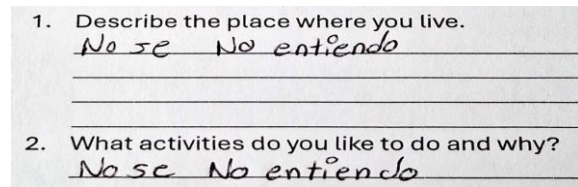 1. Describe the place where you live.
No se No entiendo
2. What activities do you like to do and why?
No se No entiendo